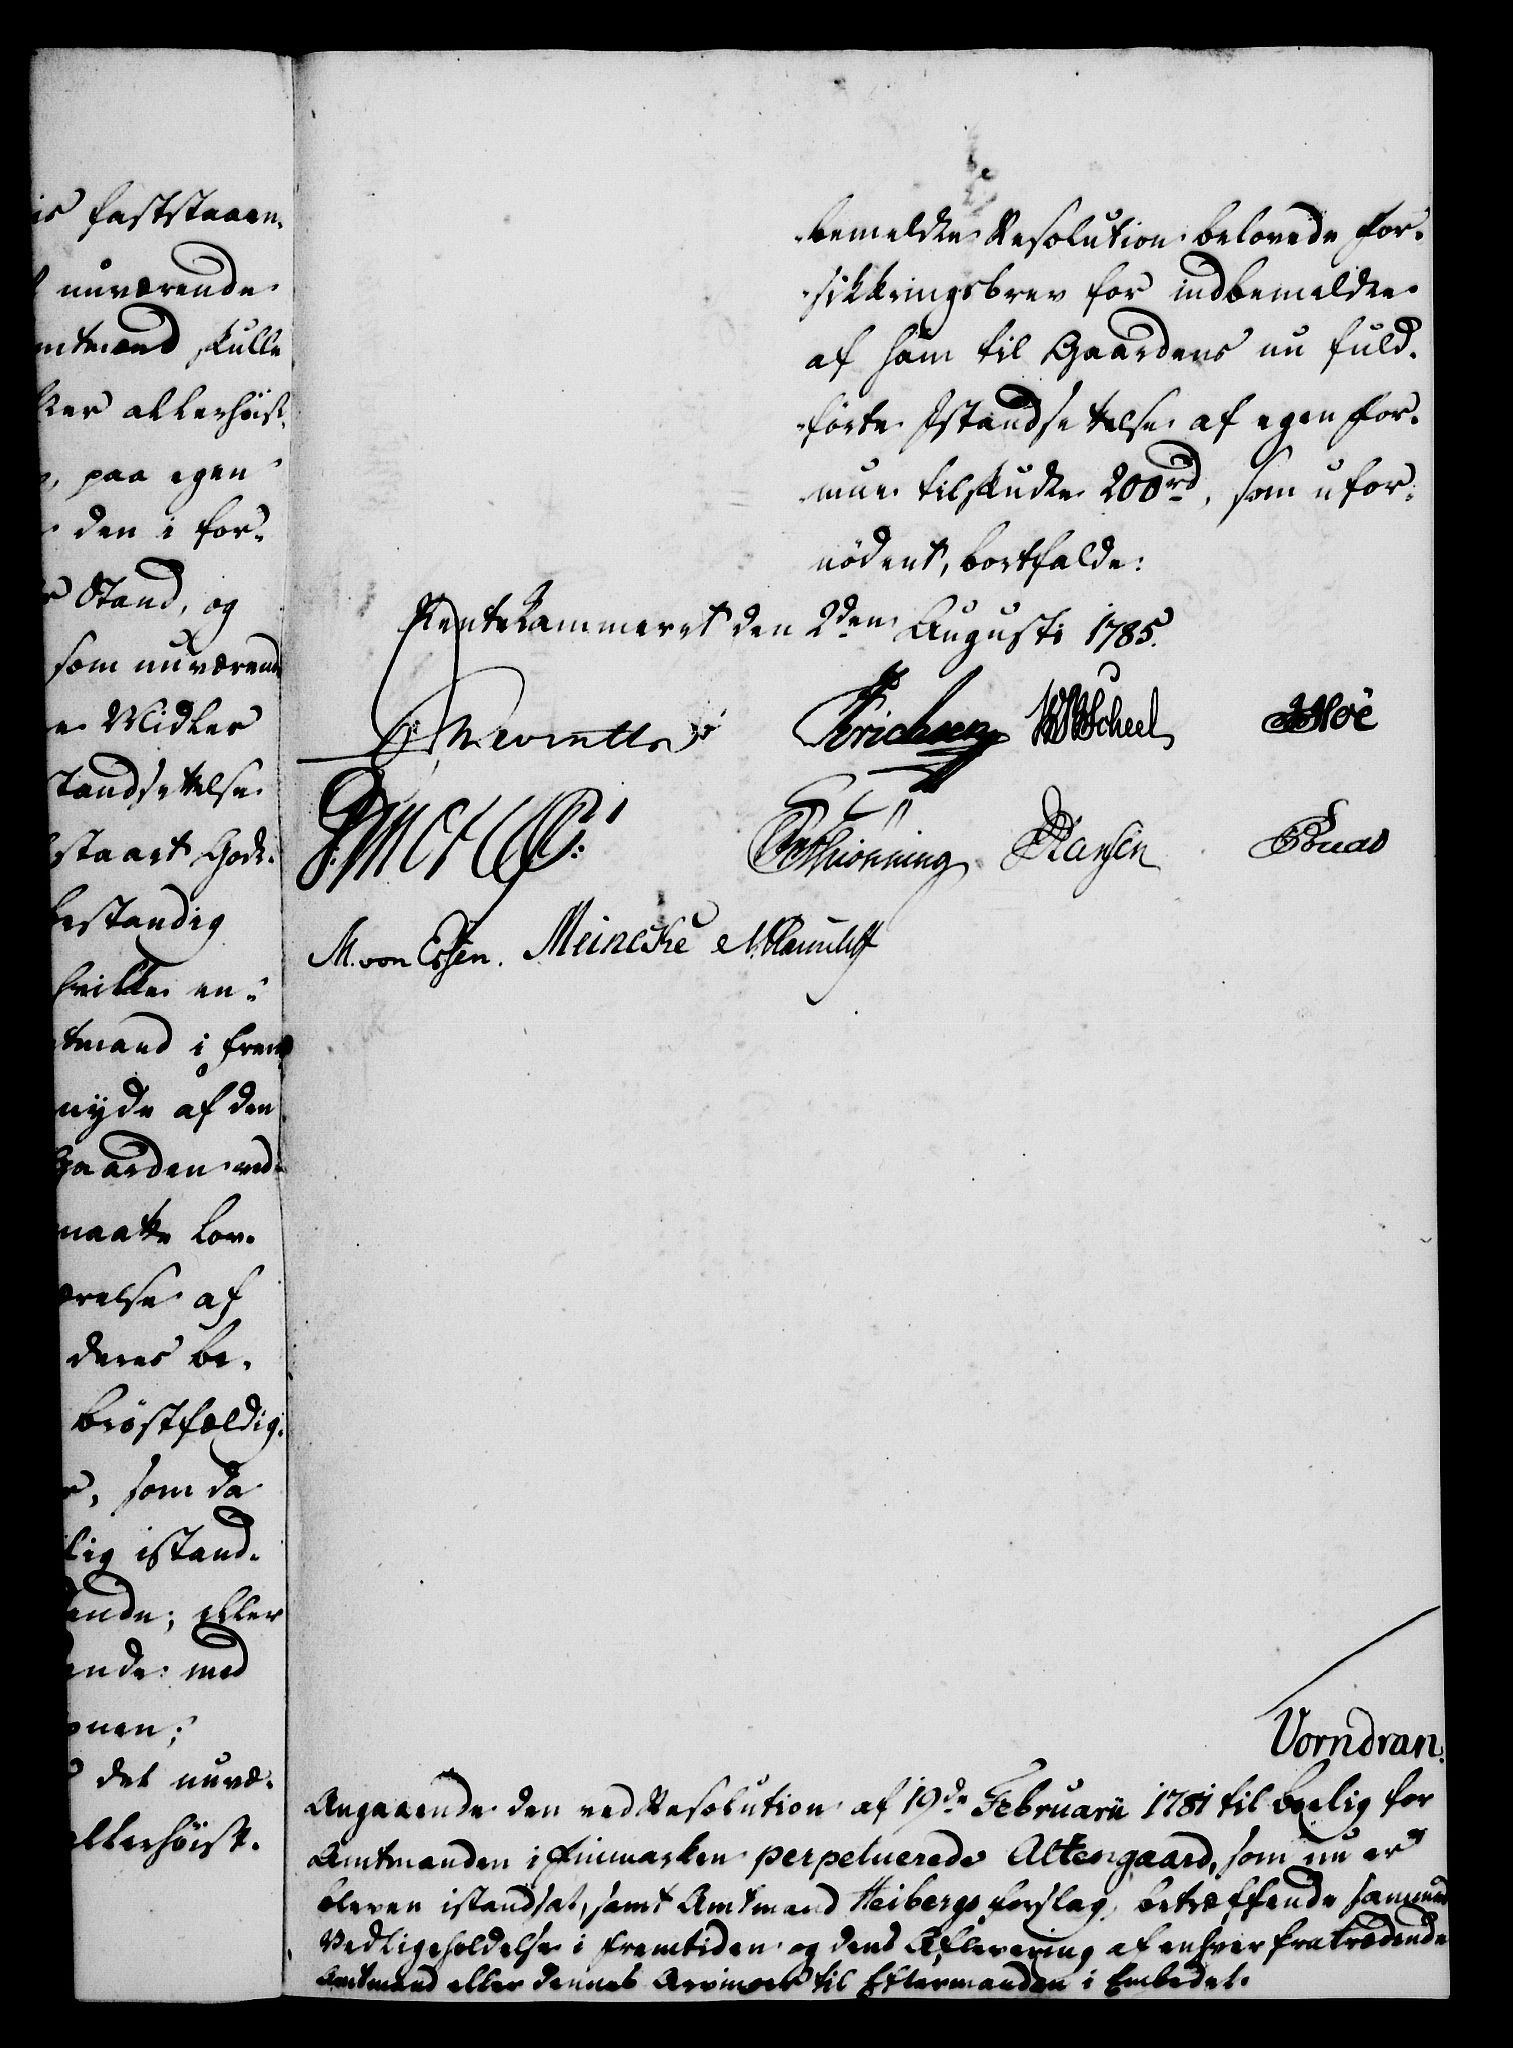 is faststaaen¬
nuværende
mtmend skulle
ker allerhöist¬
paa egen
den i for¬
Stand, og
som nuværend
e Midler
tandsettelse
staart Gods.
bestandig
hvilke en¬
tmand i frem
nyde af den
Gaarden ved¬
maatte lov¬
ærelse af
deres be¬
bröstfældig¬
r, som da
lig istand¬
ende; eller
ende med
onen;
det nuvæ¬
allerhöist¬
bemeldte Resolution belovede For¬
sikkringsbrev for indbemeldte
af ham til Gaardens nu fuld¬
förte Istandsettelse af egen For¬
mue tilskudte 200rd, som ufor¬
nödent, bortfalde:
Rentekammeret den 2den Augusti 1785.
Erichsen WScheel JMöe
Schiönning Hansen
M. von Essen. Meincke
Vorndran.
Angaaende den ved Resolution af 19de Februarii 1781 til boelig for
Amtmanden i Finmarken perpetuerede Altengaard, som nu er
bleven istandsat, samt Amtmand Heibergs forslag, betræffende sammes
Vedligeholdelse i fremtiden og dens Aflevering af enhver fratrædende
Amtmand eller dennes Arvinger til Eftermanden i Embedet.